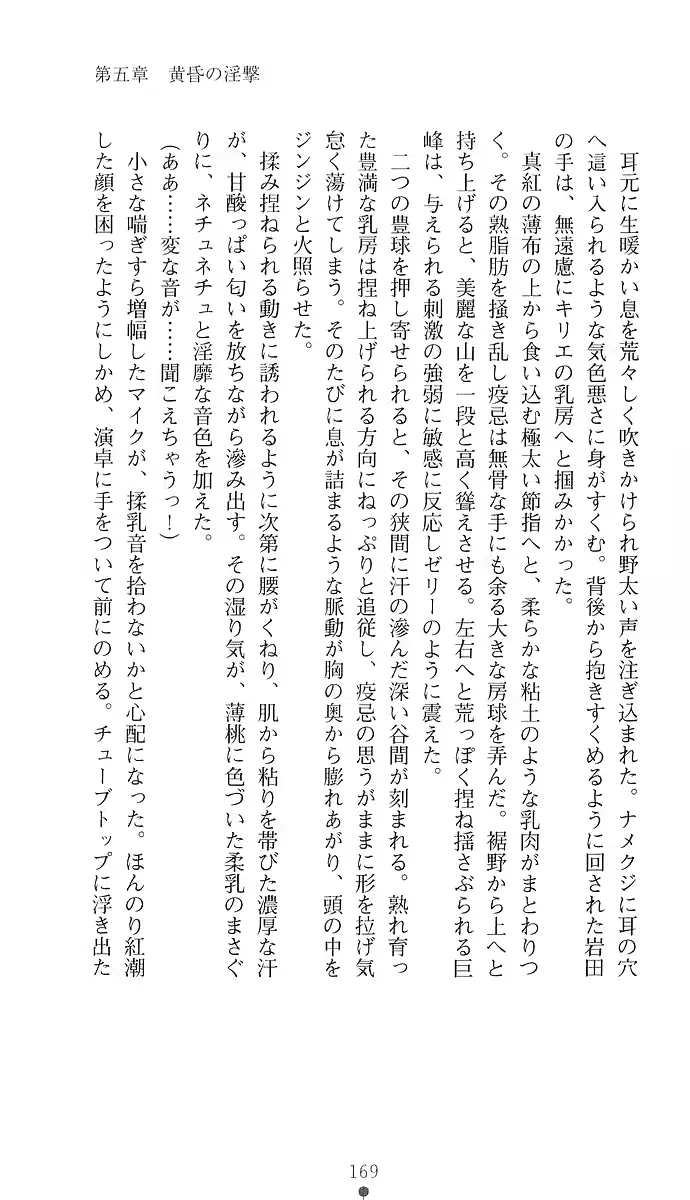 第五章　黄昏の淫撃
　耳元に生暖かい息を荒々しく吹きかけられ野太い声を注ぎ込まれた。ナメクジに耳の穴
へ這い入られるような気色悪さに身がすくむ。背後から抱きすくめるように回された岩田
の手は、無遠慮にキリエの乳房へと掴みかかった。
　真紅の薄布の上から食い込む極太い節指へと、柔らかな粘土のような乳肉がまとわりつ
く。その熟脂肪を掻き乱し疫忌は無骨な手にも余る大きな房球を弄んだ。裾野から上へと
持ち上げると、美麗な山を一段と高く聳えさせる。左右へと荒っぽく捏ね揺さぶられる巨
峰は、与えられる刺激の強弱に敏感に反応しゼリーのように震えた。
　二つの豊球を押し寄せられると、その狭間に汗の滲んだ深い谷間が刻まれる。熟れ育っ
た豊満な乳房は捏ね上げられる方向にねっぷりと追従し、疫忌の思うがままに形を拉げ気
怠く蕩けてしまう。そのたびに息が詰まるような脈動が胸の奥から膨れあがり、頭の中を
ジンジンと火照らせた。
　揉み捏ねられる動きに誘われるように次第に腰がくねり、肌から粘りを帯びた濃厚な汗
が、甘酸っぱい匂いを放ちながら滲み出す。その湿り気が、薄桃に色づいた柔乳のまさぐ
りに、ネチュネチュと淫靡な音色を加えた。
（ああ……変な音が……聞こえちゃうっ！）
　小さな喘ぎすら増幅したマイクが、揉乳音を拾わないかと心配になった。ほんのり紅潮
した顔を困ったようにしかめ、演卓に手をついて前にのめる。チューブトップに浮き出た
169